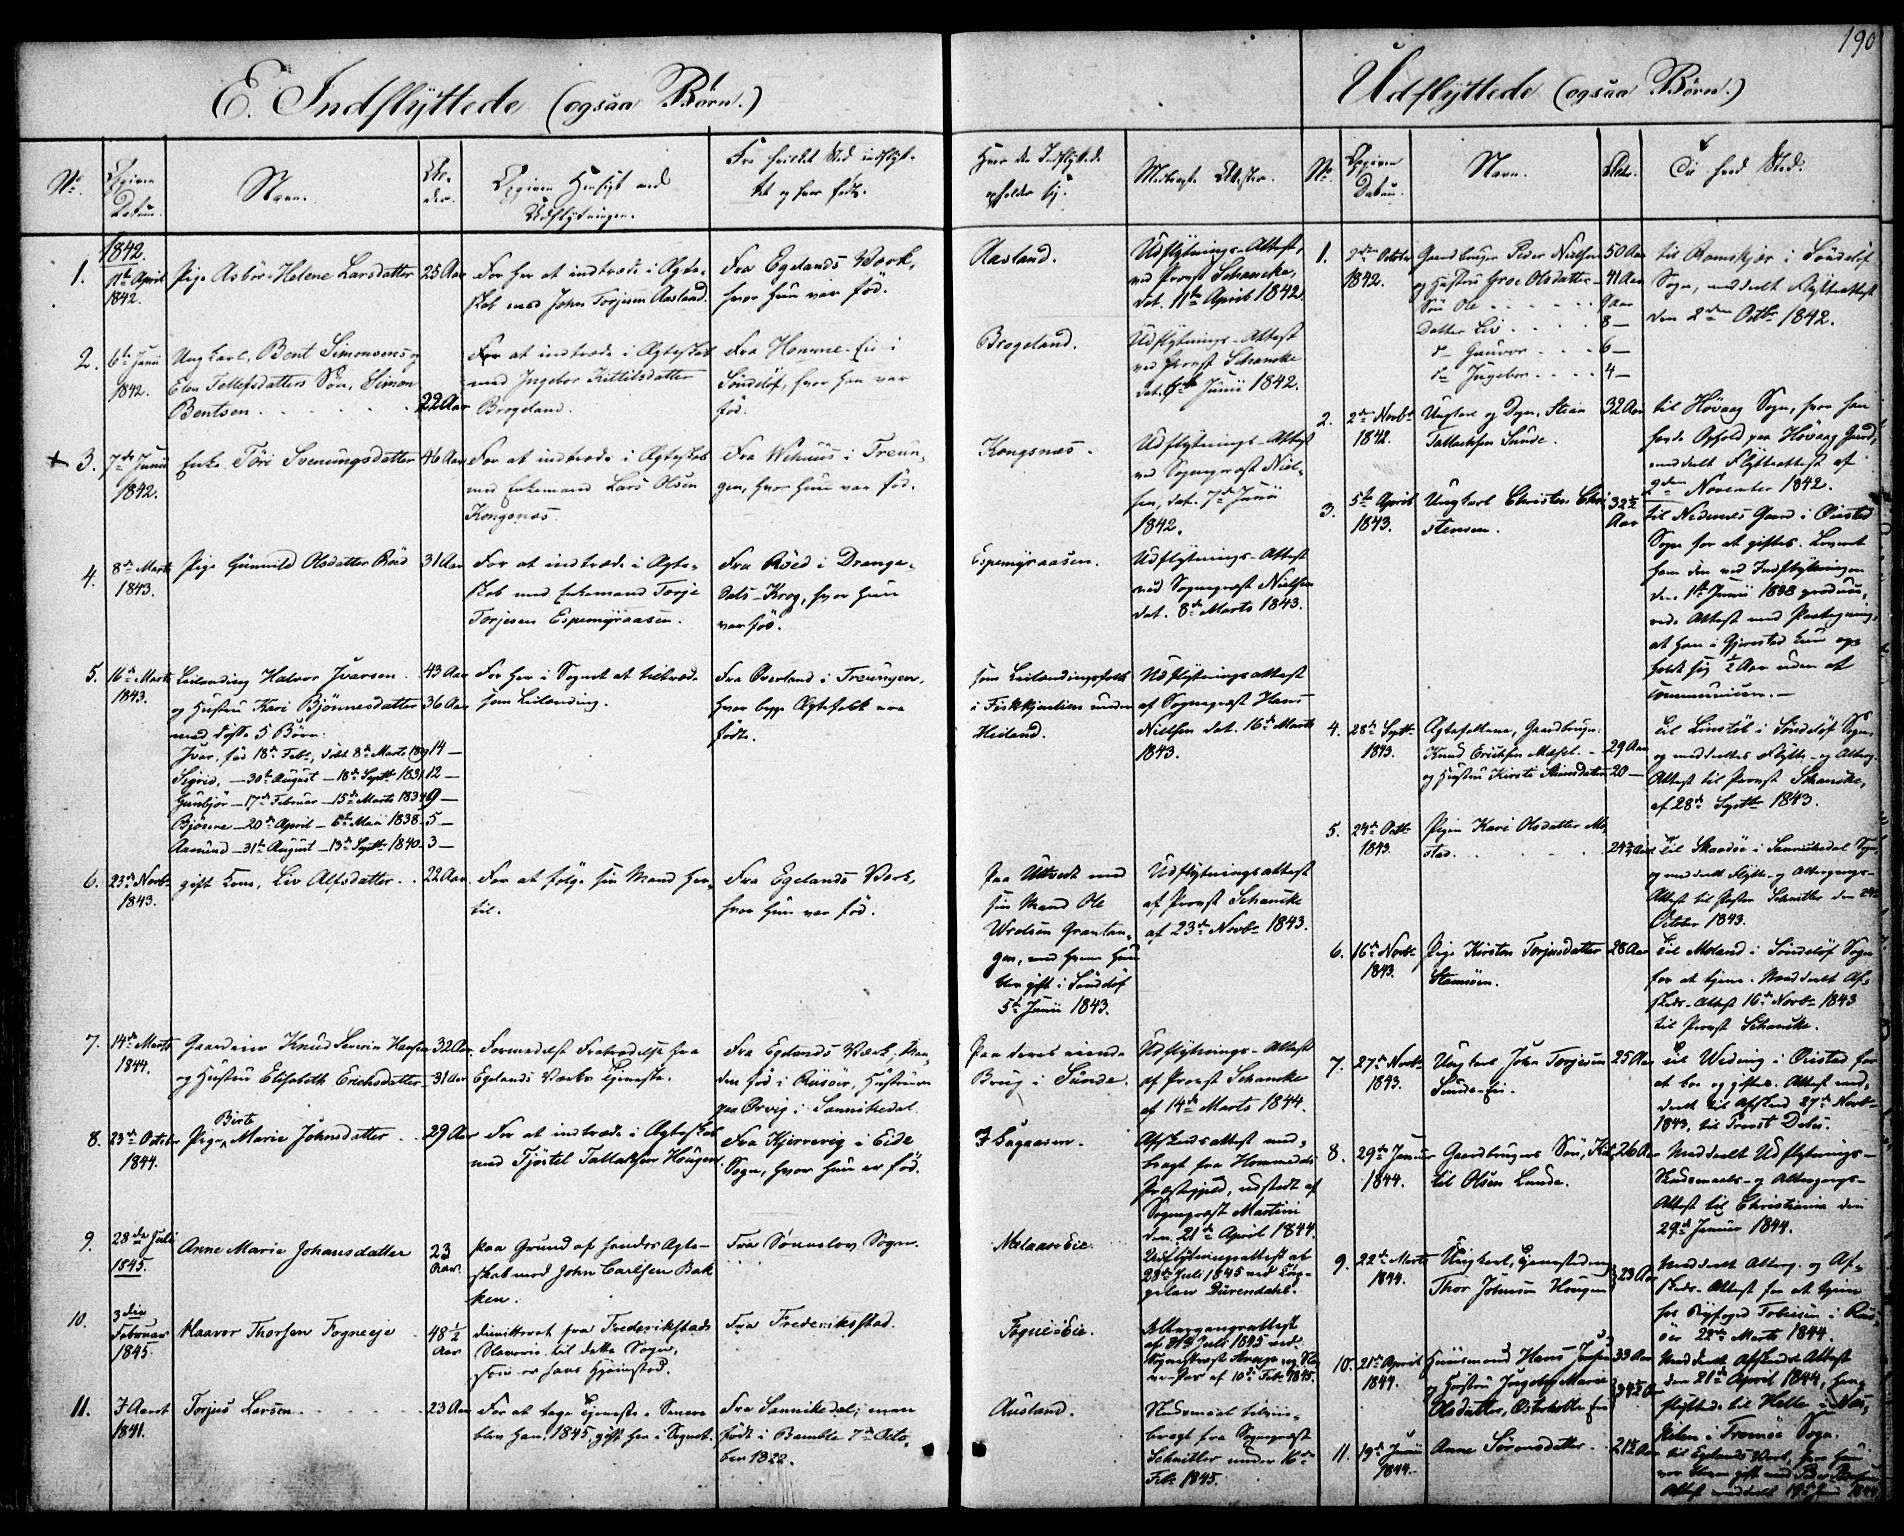 190
E. Indflyttede (ogsaa Børn.)
No
Opgiven Datum
Navn.
Alder.
Opgiven Hensigt med Udflytningen.
Fra hvilket Sted indflyttet og hvor født.
Hvor de Indflyttede opholde sig.
Medbragte Attester.
1842.
1.
11te April 1842.
Pige Asbór Helene Larsdatter
25 Aar
For her at indtræde i Ægteskab med John Torjusen Aasland.
Fra Egelands Værk, hvor hun var fød.
Aasland.
Udflytnings-Attest, ved Provst Schancke, dat. 11te April 1842.
2.
6te Junii 1842.
Ungkarl, Bent Simonsens og
Elen Tellefsdatters Søn, Simon
Bentsen
22 Aar
For at indtræde i Ægteskab
med Ingebor Kittilsdatter
Brogeland.
Fra Homme-Eie i
Söndeløf, hvor han var
fød.
Brogeland.
Udflytnings-Attest
ved Provst Schancke
dat. 6te Junii 1842.
+ 3.
7de Junii 1842.
Enke Töri Svenungsdatter
46 Aar
For at indtræde i Ægteskab
med Enkemand Lars Olsen
Kongsnæs.
Fra Wehuus i Treungen, hvor hun var fød.
Kongsnæs.
Udflytnings-Attest
ved Sognepræst Nielsen, dat. 7de Junii
1842.
4.
8de Marts 1843.
Pige Gunnild Olsdatter Röed
31 Aar
For at indtræde i Ægteskab med Enkemand Torje
Torjesen Espemyraasen.
Fra Röed i Drangedals-Krog, hvor hun
var fød.
Espemyraasen.
Udflytnings-Attest
ved Sognepræst Nielsen
dat. 8de Marts 1843.
5.
16de Marts 1843.
Leilænding Halvor Ivarsen
43 Aar
og Hustru Kari Bjönnesdatter
36 Aar
med disse 5 Børn:
Ivar, fød 18de Febr., döbt 8de Marts 1829
14 —
Sigrid, — 30te August — 18de Septbr 1831
12 —
Gunbjör — 17de Februar — 15de Marts 1834
9 —
Bjönne — 20de April — 6te Maii 1838
5 —
Aamund — 31te August — 13de Septbr 1840
3 —
For her i Sognet at tiltræde
som Leilænding.
Fra Overland i Treungen,
hvor begge Ægtefolk ere
födte.
som Leilændingsfolk
under
Heiland.
Udflytningsattest
af Sognepræst Hans
Nielsen dat. 16de Marts
1843.
6.
23de Novbr 1843.
gift Kone, Liv Alfsdatter
22 Aar
For at følge sin Mand hertil.
Fra Egelands Værk,
hvor hun var fød.
paa med
sin Mand Ole
med hvem hun
blev gift i Söndeløf
5te Junii 1843.
Udflytningsattest
af Provst Schancke
af 23de Novbr 1843.
7.
14de Marts 1844.
Gaardeier Knud Severin Hansen
32 Aar
og Hustru Elisabeth Erichsdatter
31 Aar
Formedelst Fratrædelse fra
Egelands Værks Tjeneste.
Fra Egelands Værk, Manden fød i Risöer, Hustruen
paa Örvig i Sannikedal.
Paa deres eiende
Brug i Sunde.
Udflytnings-Attest
af Provst Schancke
af 14de Marts 1844.
8.
23de October 1844.
Pige Birte Marie Johnsdatter
29 Aar
For at indtræde i Ægteskab
med Tjöstel Tallaksen Hougen.
Fra Kjerrevig i Eide
Sogn, hvor hun er fød.
Afskedsattest medbragt fra Hommedals
Præstegjeld, udstedt af
Sognepræst Martini
den 21de April 1844.
9.
28de Juli 1845.
Anne Marie Johansdatter
23 Aar.
paa Grund af hendes Ægteskab med John Carlsen Bakken.
Fra Sønneløv Sogn.
MelaasEie.
Udflytningsattest af
28de Juli 1845 ved Capellan Dürendahl.
10.
3die Februar 1845.
Haavor Thorsen Fogneeje
48½ Aar
dimitteret fra Frederikstads
Slaveri til dette Sogn,
som er hans Hjemsted.
Fra Frederikstad.
FogneEie.
Altergangsattest
af 31te Juli 1845 ved
Sognepræst
af 10de Febr 1845.
11.
I Aaret 1841.
Torjus Larsen
23 Aar
For at tage Tjeneste. Senere
blev han, 1845, gift her i Sognet.
Fra Sannikedal; men
født i Bamble 7de October 1822.
Ausland.
Skudsmaal
bragt fra Sognepræst
Schnitler under 16de
Febr 1845.
Udflyttede (ogsaa Børn.)
No
Opgiven Datum
Navn.
Alder.
Til hvad Sted.
1.
2den October 1842.
Gaardbruger Peder Nielsen
50 Aar
og Hustru Groe Olsdatter
41 Aar
Sön Ole
9 Aar
Datter Liv
8 —
do Gunvor
6 —
do Ingebor
4 —
til Ramskjær i Söndeløf
Sogn, meddeelt Flytteattest
den 2den Octbr 1842.
2.
2den Novbr 1842.
Ungkarl og Dgn. Stian
Tallaksen Sunde.
32 Aar
til Høvaag Sogn, hvor han
havde Ophold paa Høvaag Gaard,
meddeelt Flytteattest af
2den November 1842.
3.
5te April 1843.
Ungkarl Christen Christensen.
32½ Aar
til Nedenes Gaard i Öiestad
Sogn for at giftes. Leveret
ham den ved Indflytningen
den 1ste Junii 1838 producerede Attest med Paategning,
at han i Gjerestad kun opholdt sig ½ Aar uden at
communicere.—
4.
28de Septbr 1843.
Ægtefolkene, Gaardbruger
Knud Erichsen Mæsel
29 Aar
og Hustru Kirsti Stiansdatter
20 —
til Linstöl i Söndeløf Sogn,
og meddeelt Flytte- og Alterg.
Attest til Provst Schancke,
af 28de Septbr 1843.
5.
24de Octbr 1843.
Pigen Kari Olsdatter Mostad
24½ Aar
til Skaadöe i Sannikedal Sogn,
og meddeelt Flytte- og Altergangs-
Attest til Pastor Schnitler den 24de
October 1843.
6.
16de Novbr 1843.
Pige Kirsten Torjusdatter
Stamsöen.
28 Aar
til Moland i Söndeløf Sogn
for at tjene. Meddeelt Afskeds-Attest 16de Novbr 1843
til Provst Schancke.
7.
27de Novbr 1843.
Ungkarl John Torjusen
Sunde-Eie.
25 Aar
til Weding i Öiestad for
at boe og giftes. Attest meddeelt til Afsked 27de Novbr
1843, til Provst Debes.
8.
29de Januar 1844.
Gaardbrugers Sön, Kittil Olsen Lunde.
26 Aar
Meddeelt Udflytnings-
Skudsmaals- og Altergangs-
Attest til Christiania den
29de Januar 1844.
9.
22de Marts 1844.
Ungkarl, Tjenestedreng
Thor Johnsen Hougen
23 Aar
Meddeelt Alterg. og Afskeds-Attest for at tjene
hos Byfoged Tobiesen i Risöer 22de Marts 1844.
10.
21de April 1844.
Huusmand Hans Jensen
33 Aar
og Hustru Ingeborg Marie
Olsdatter, Österholt-Eie
34½ Aar
Meddeelt Afskeds-Attest
den 21de April 1844, hen-
flyttede til Helle i
i Tromöe Sogn.
11.
19de Junii 1844.
Anne Sörensdatter
21½ Aar
til Egelands Værk, hvor hun
var bleven gift med Peder
Attest meddeelt 19de Junii 1844.